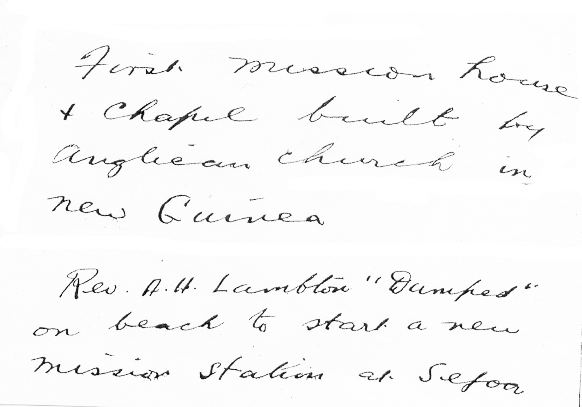 First mission house
+ Chapel built by
Anglican church in
new Guinea
Rev. A.H. Lambton "Dumped"
on beach to start a new
mission station at Sefoa